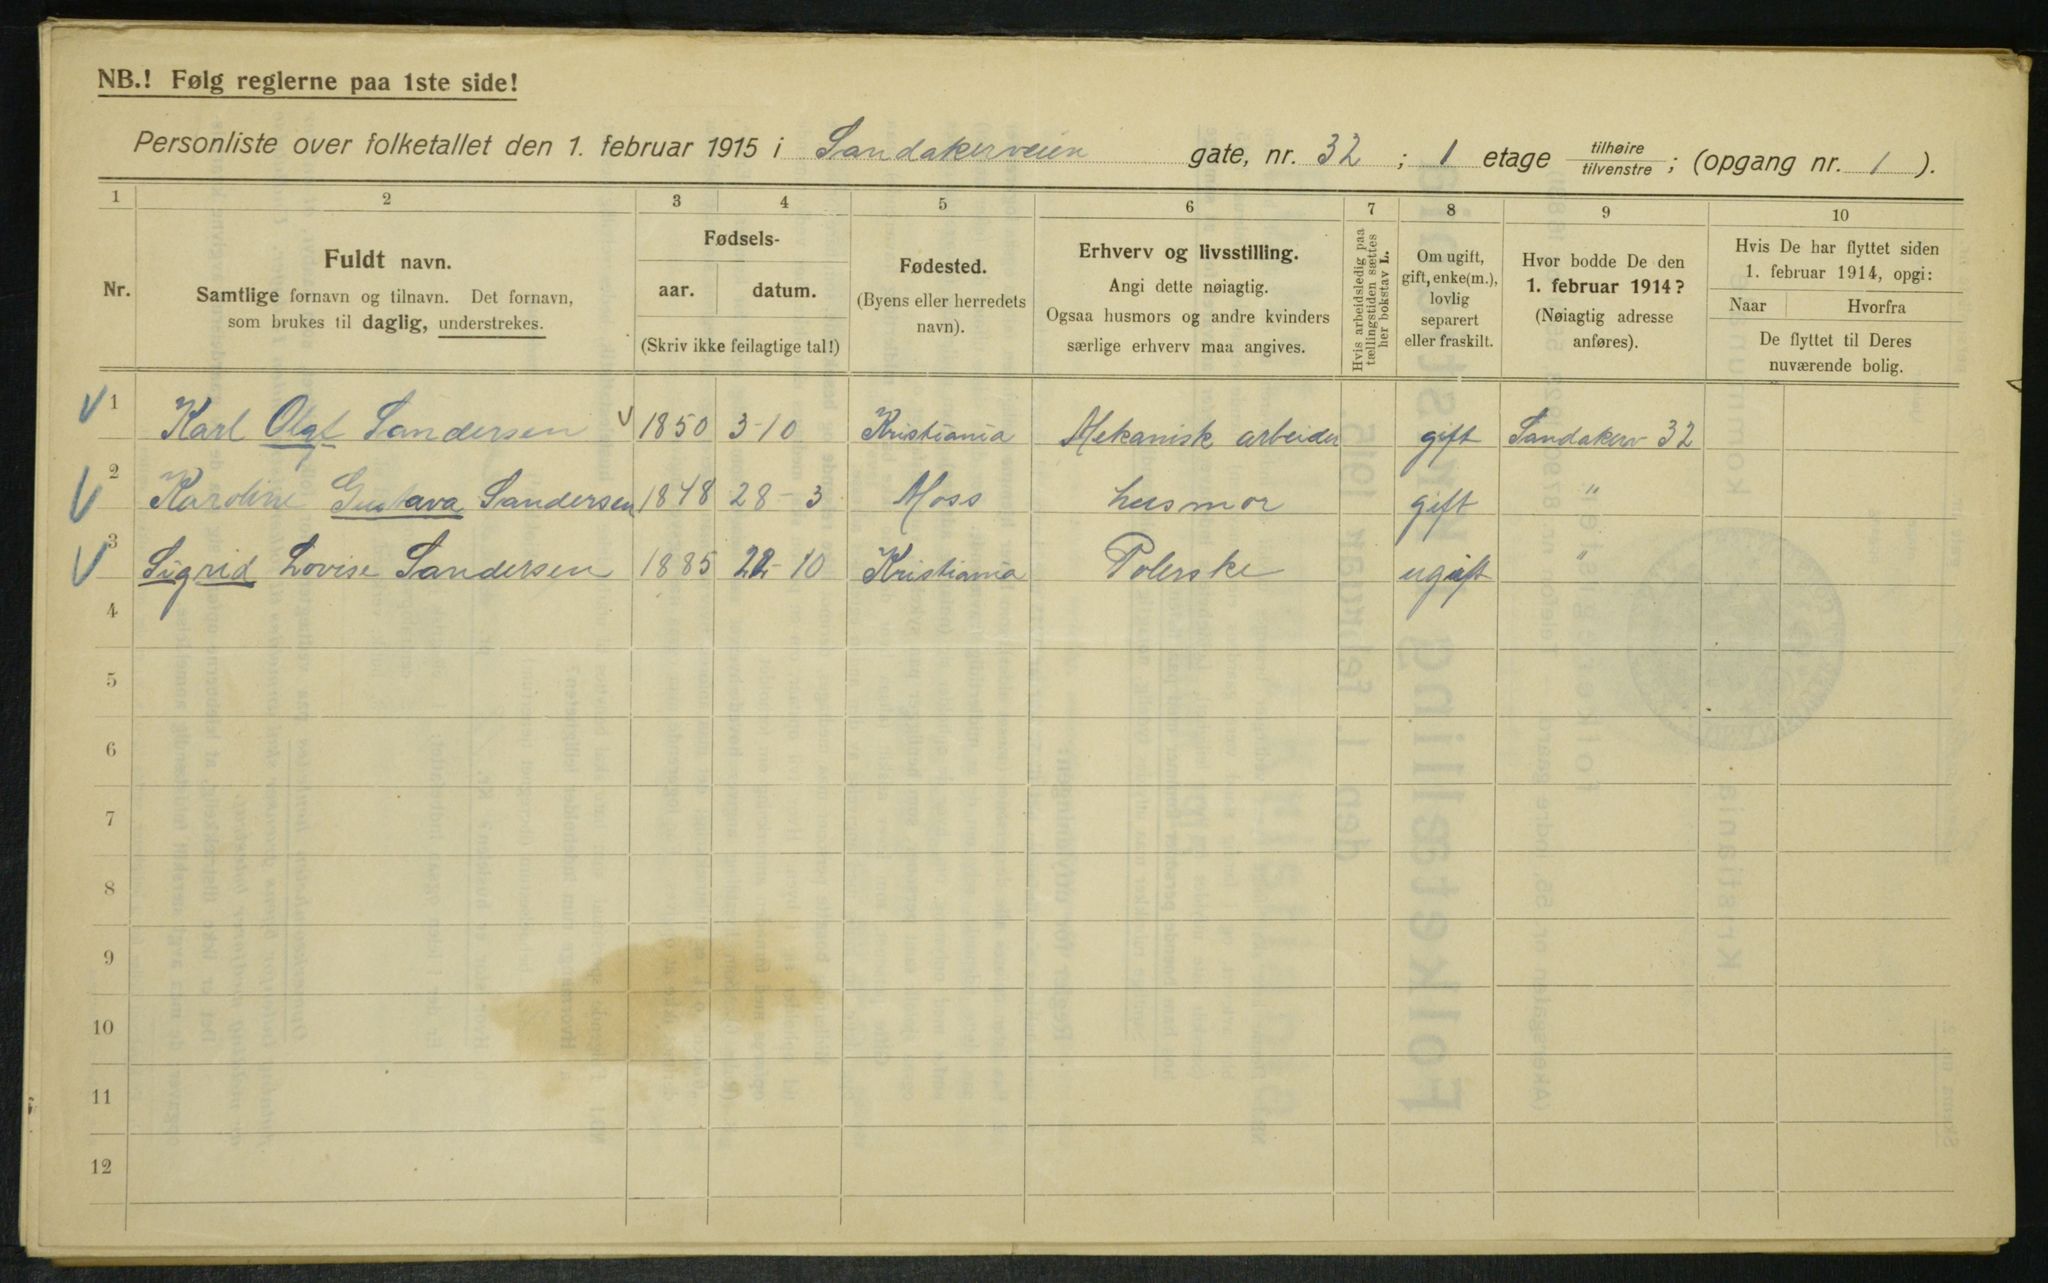 NB.! Følg reglerne paa 1ste side!
Personliste over folketallet den 1. februar 1915 i Sandakerveien gate, nr. 32 ; 1 etage tilhøire tilvenstre ; (opgang nr. 1 ).
1 2 3 4 5 6 7 8 9 10
Nr.
Fuldt navn.
Samtlige fornavn og tilnavn. Det fornavn,
som brukes til daglig, understrekes.
Fødsels-
aar. datum.
(Skriv ikke feilagtige tal!)
Fødested.
(Byens eller herredets
navn).
Erhverv og livsstilling.
Angi dette nøiagtig.
Ogsaa husmors og andre kvinders
særlige erhverv maa angives.
Hvis arbeidsledig paa
tællingstiden sættes
her bokstav L.
Om ugift,
gift, enke(m.),
lovlig
separert
eller fraskilt.
Hvor bodde De den
1. februar 1914?
(Nøiagtig adresse
anføres).
Hvis De har flyttet siden
1. februar 1914, opgi:
Naar Hvorfra
De flyttet til Deres
nuværende bolig.
1 Karl Olaf Sandersen 1850 3-10 Kristiania Mekanisk arbeider gift Sandakerv 32
2 Karoline Gustava Sandersen 1848 28-3 Moss husmor gift "
3 Sigrid Lovise Sandersen 1885 22-10 Kristiania Polerske ugift "
4
5
6
7
8
9
10
11
12